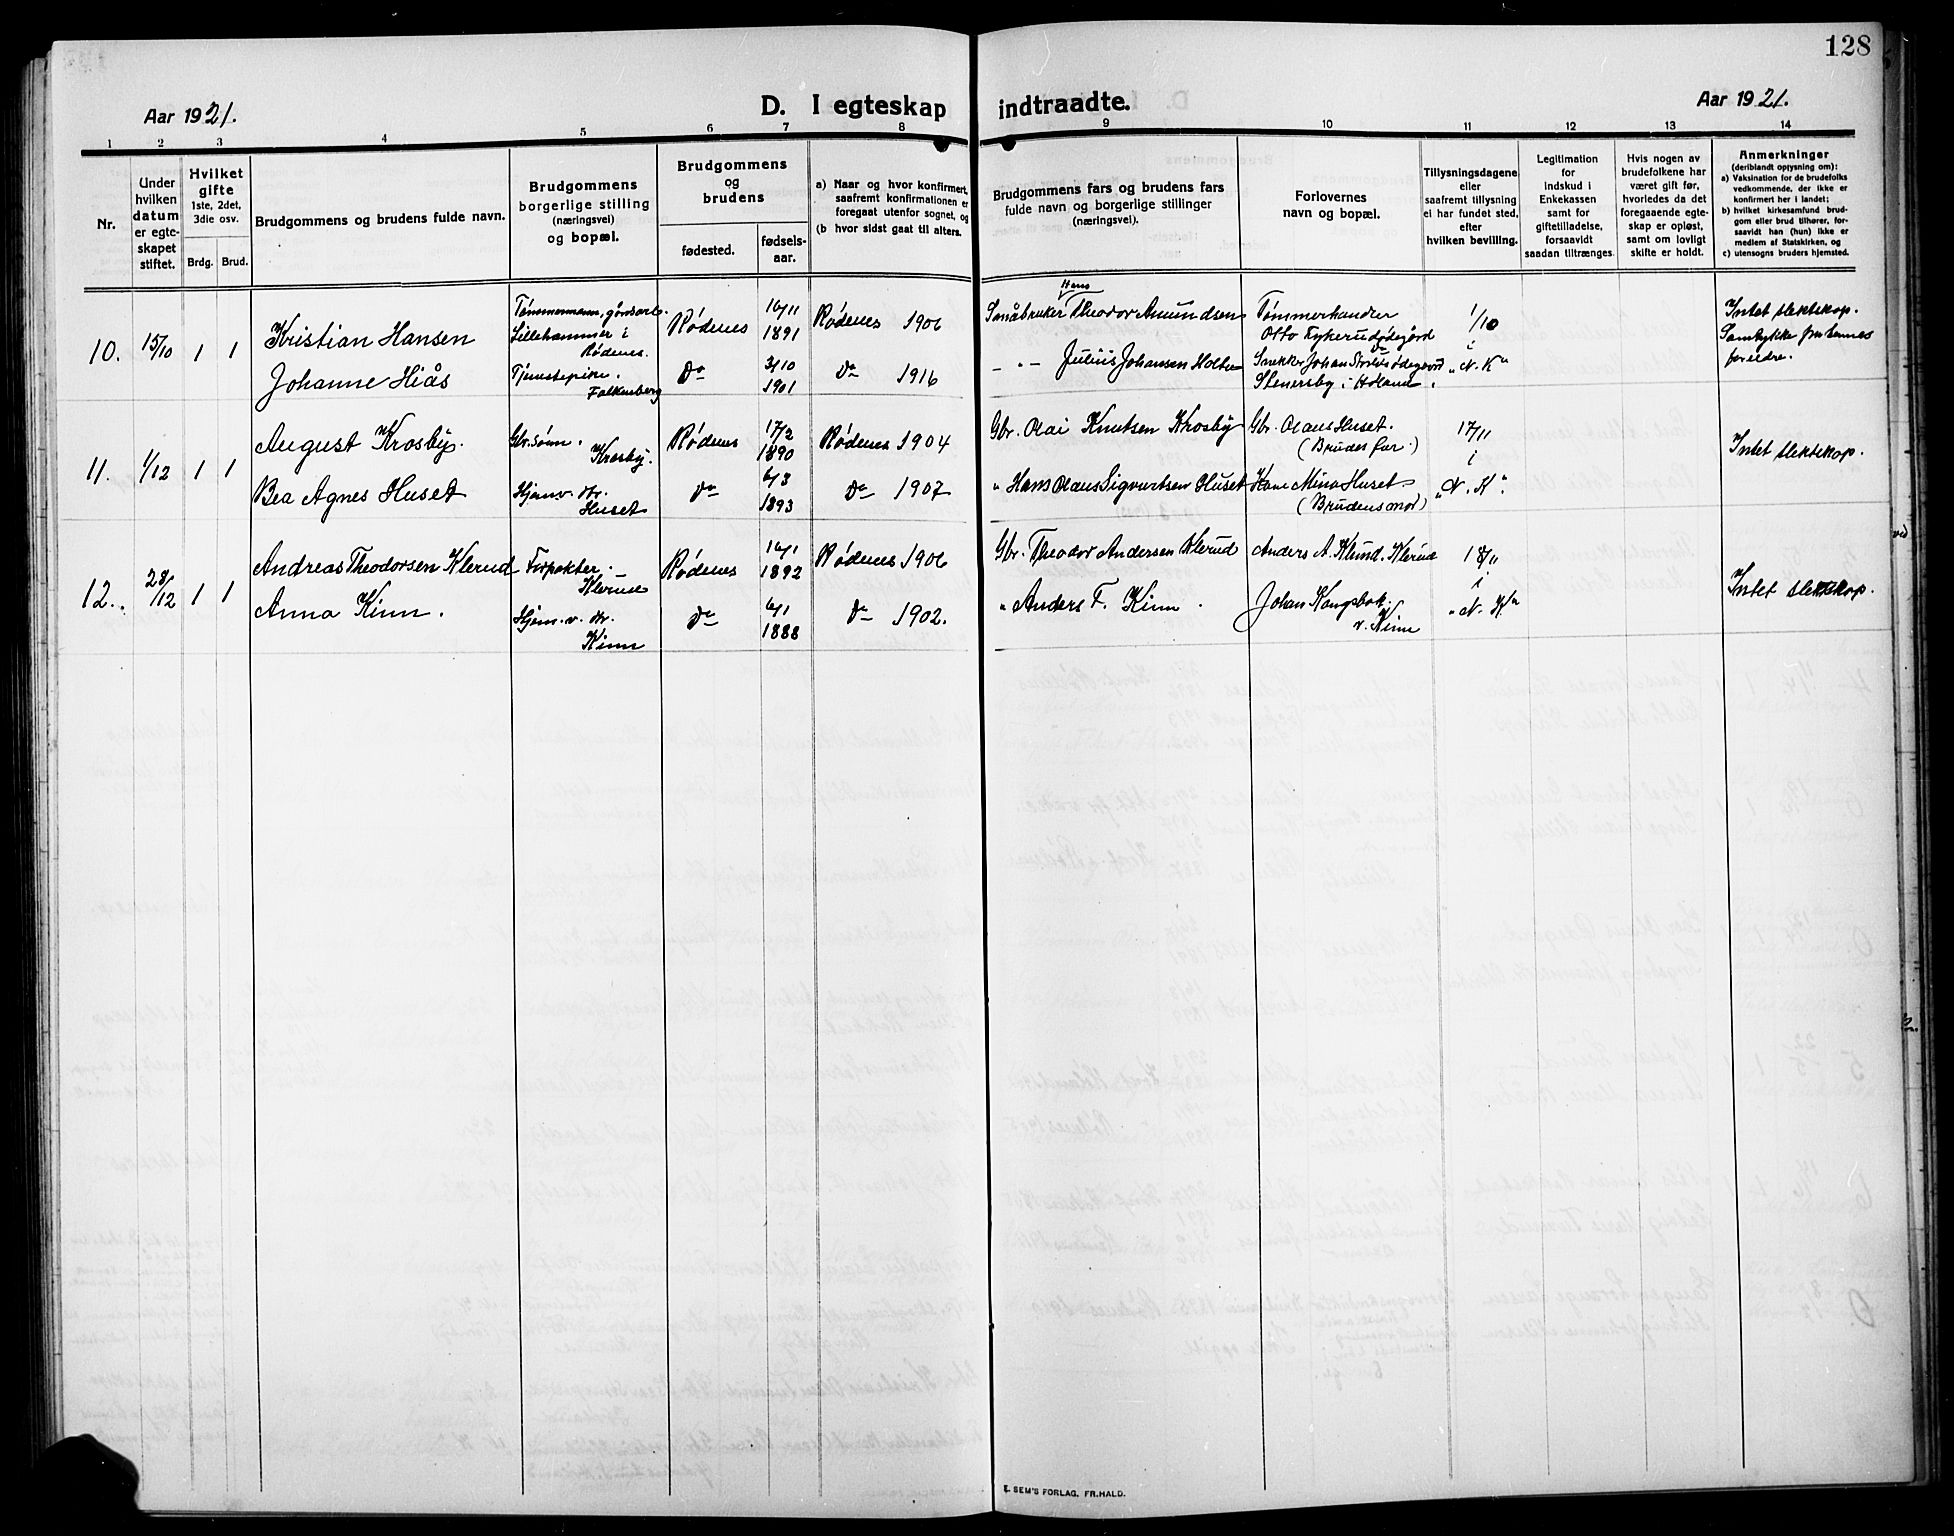 128
Aar 1921.
D. I egteskap indtraadte.
Aar 1921.
1 2 3 4 5 6 7 8 9 10 11 12 13 14
Nr.
Under hvilken datum er egteskapet stiftet.
Hvilket gifte 1ste, 2det, 3die osv.
Brdg. Brud.
Brudgommens og brudens fulde navn.
Brudgommens borgerlige stilling (næringsvei) og bopæl.
Brudgommens og brudens
fødested. fødselsaar.
a) Naar og hvor konfirmert, saafremt konfirmationen er foregaat utenfor sognet, og
(b hvor sidst gaat til alters.
Brudgommens fars og brudens fars fulde navn og borgerlige stillinger (næringsvei).
Forlovernes navn og bopæl.
Tillysningsdagene eller saafremt tillysning ei har fundet sted, efter hvilken bevilling.
Legitimation for Indskud i Enkekassen samt for giftetilladelse, forsaavidt saadan tiltrænges
Hvis nogen av brudefolkene har været gift før, hvorledes da det foregaaende egteskap er opløst, samt om lovligt skifte er holdt.
Anmerkninger (deriblandt oplysning om):
a) Vaksination for de brudefolks vedkommende, der ikke er konfirmert her i landet;
b) hvilket kirkesamfund brudgom eller brud tilhører, forsaavidt han (hun) ikke er medlem af Statskirken, og
c) utensogns bruders hjemsted.
10. 15/10 1 1
Kristian Hansen
Tømmermann, gårdsarb. Lillehammer i Rødenes.
Rødenes 16/11 1891 Rødenes 1906
Småbruker Hans Theodor Amundsen
Tømmerhandler Otto Fykerudødegård
1/10 i "N. K"
Intet slektskap. Samtykke fra hennes foreldre.
Johanne Hiås
Tjenestepike. Falkenberg
do 3/10 1901 do 1916
- " - Julius Johansen Holter
Snekker Johan Ødegård Stenersby i Høland.
11. 1/12 1 1
August Krosby.
Gbr.sønn. Krosby.
Rødenes 17/2 1890 Rødenes 1904
Gbr. Olai Knutsen Krosby
Gbr. Olaus Huset. (Brudes far.)
17/11 i "N. K".
Intet slektskap.
Bea Agnes Huset
Hjemv. dtr. Huset
do 6/3 1893 do 1907
" Hans Olaus Sigvartsen Huset
Kone Mina Huset (Brudens mor)
12. 28/12 1 1
Andreas Theodorsen Klerud
Forpakter. Klerud
Rødenes 16/1 1892 Rødenes 1906
Gbr. Theodor Andersen Klerud
Anders A. Klund. Klerud
18/11 i "N. K"
Intet slektskap.
Anna Kinn.
Hjem. v. dtr. Kinn
do 6/1 1888 do 1902.
" Anders F. Kinn.
Johan Kongsbak. v. Kinn
E. SEM'S FORLAG. FR.HALD.